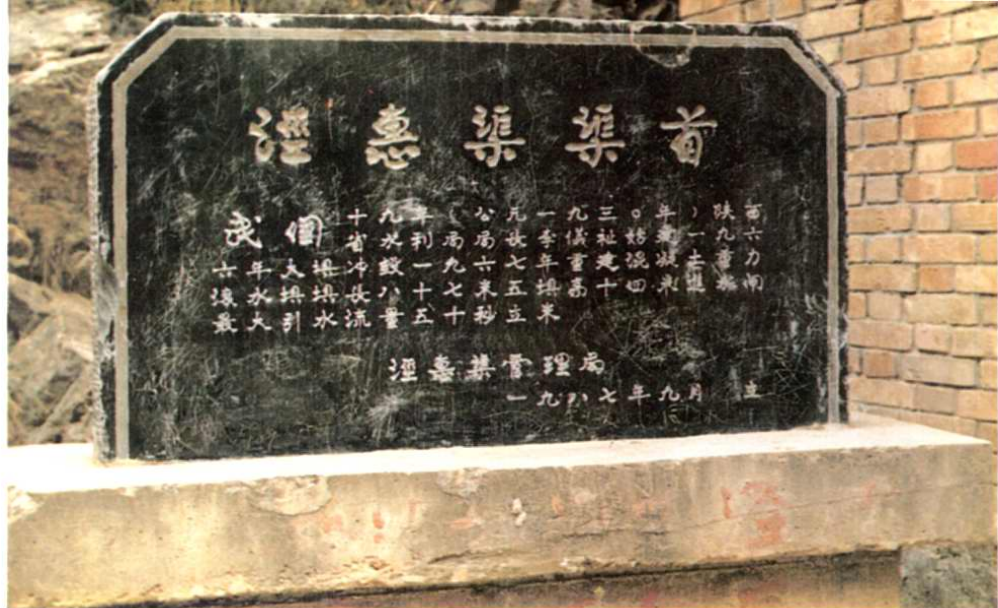 泾惠渠渠首
十九年（公元一九三〇年）陕西
省水利局局长李仪祉 一九六
六年大坝冲毁一九六七年重建混凝土重力
滚水坝坝长八十七米五坝高十四米进水闸
最大引水流量五十秒立米
泾惠渠管理局
一九八七年九月 立